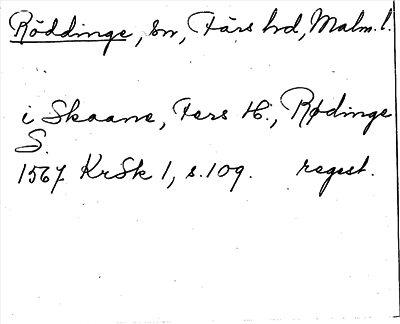 Röddinge, sn, Färs hd, Malm. l.
i Skaane, Fers H., Rødinge
S.
1567 KrSk 1, s. 109. regest.